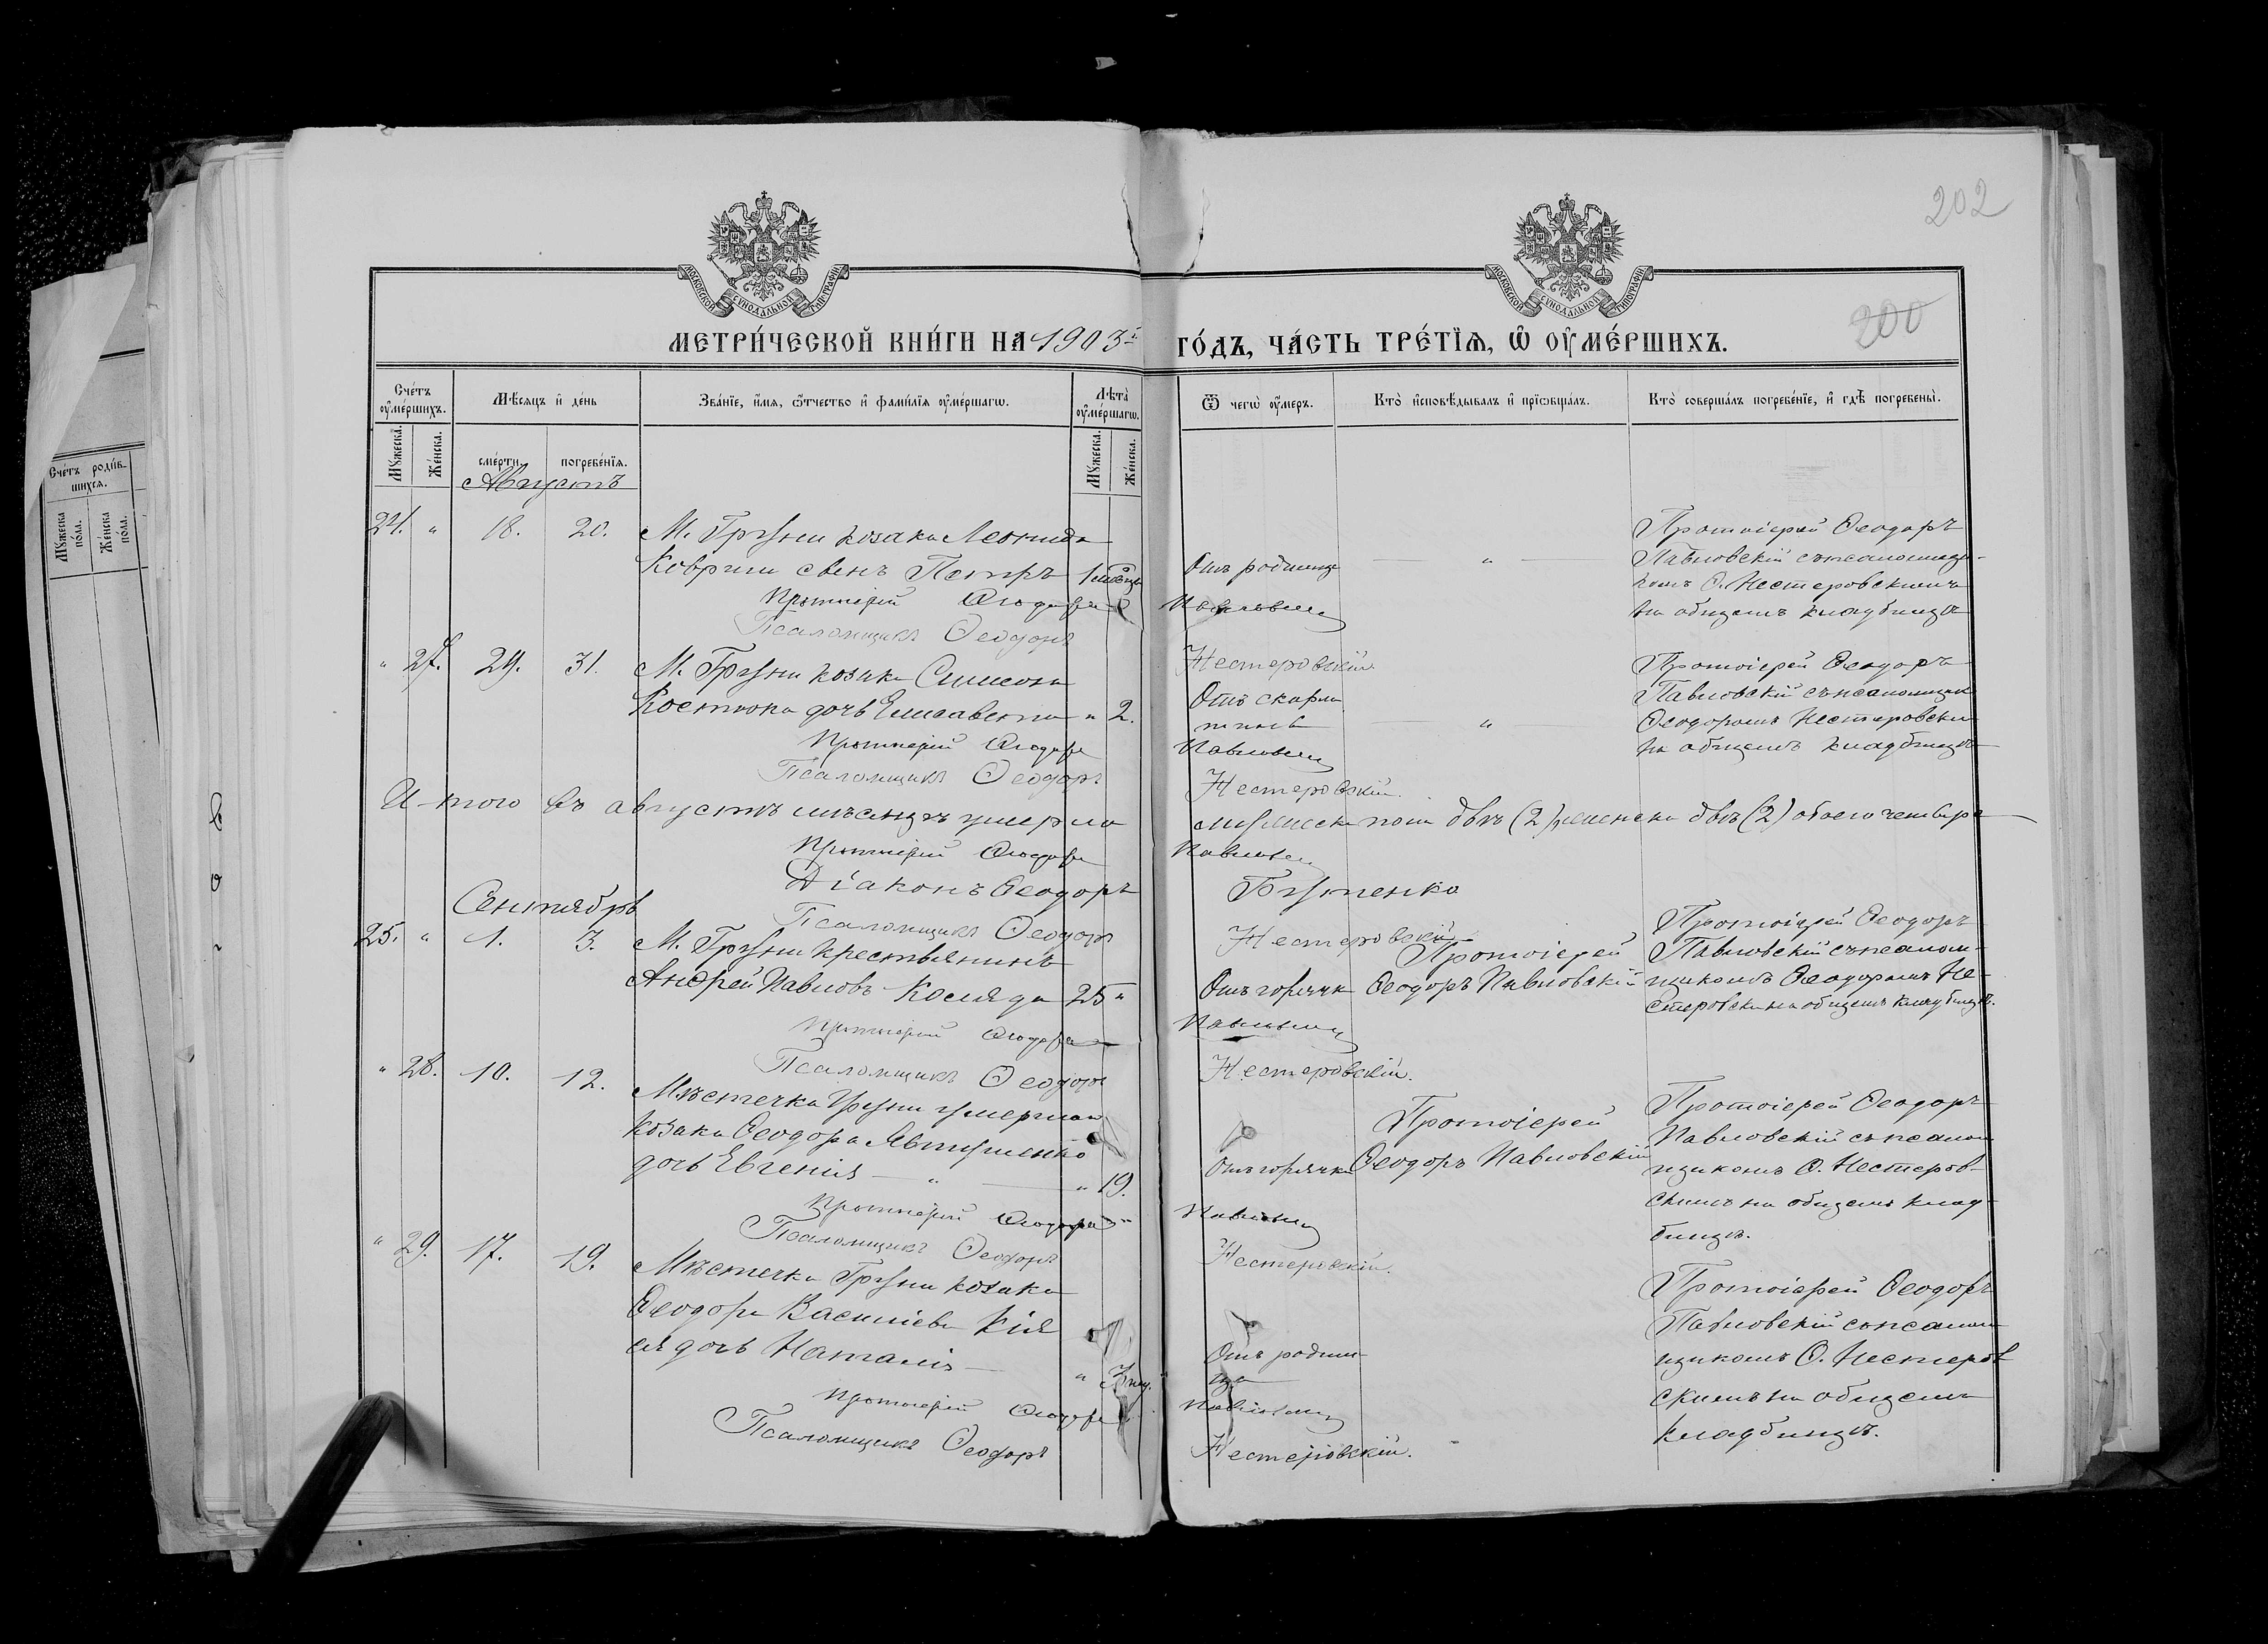 202
200
МОСКОВСКОЙ СѴНОДАЛЬНОЙ ТИПОГРАФІИ
МОСКОВСКОЙ СѴНОДАЛЬНОЙ ТИПОГРАФІИ
МЕТРИ́ЧЕСКОЙ КНИ́ГИ НА 1903й ГО́ДЪ, ЧА́СТЬ ТРЕ́ТЇѦ, Ѡ҆ ОУ҆МЕ́РШИХЪ.
Сче́тъ оу҆ме́ршихъ.
Мѣ́сяцъ и҆ де́нь
Зва́нїе, и҆́мѧ, ѻ҆́тчество и҆ фами́лїѧ оу҆ме́ршагѡ.
Лѣта̀ оу҆ме́ршагѡ.
Ѿ чегѡ̀ оу҆́меръ.
Кто̀ и҆сповѣ́дывалъ и҆ прїѡбща́лъ.
Кто̀ соверша́лъ погребе́нїе, и҆ гдѣ̀ погребены̀.
Мꙋ́жеска.
Же́нска.
сме́рти.
погребе́нїѧ.
Мꙋ́жеска.
Же́нска.
Сче́тъ роди́в-
шихсѧ.
Мꙋ́жеска по́ла.
Же́нска по́ла.
Августъ
24. " 18. 20. М. Груни козака Леонида
Ковриги сынъ Петръ
Отъ родимца
"
Протоіерей Ѳеодоръ
Павловскій съ псаломщи-
комъ Ѳ. Нестеровскимъ
на общемъ кладбищѣ
Протоіерей Ѳеодоръ Павловскій
Псаломщикъ Ѳеодоръ Нестеровскій.
" 27. 29. 31. М. Груни козака Симеона
дочь Елисавета " 2.
Отъ скарла
тины
"
Протоіерей Ѳеодоръ
Павловскій съ псаломщик
Ѳеодоромъ Нестеровски
на общемъ кладбищѣ
Протоіерей Ѳеодоръ Павловскій
Псаломщикъ Ѳеодоръ Нестеровскій.
И-того въ августѣ мѣсяцѣ умерло мужеска пола двѣ (2) женска двѣ (2) обоего четыре
Протоіерей Ѳеодоръ Павловскій
Діаконъ Ѳеодоръ Бутенко
Псаломщикъ Ѳеодоръ Нестеровскій.
Сентябрь
25. " 1. 3. М. Груни крестьянинъ
Андрей Павловъ Коляда 25 "
Отъ горячки
Протоіерей
Ѳеодоръ Павловскій
Протоіерей Ѳеодоръ
Павловскій съ псалом-
щикомъ Ѳеодоромъ Не-
стеровски на общемъ кладбищѣ.
Протоіерей Ѳеодоръ Павловскій
Псаломщикъ Ѳеодоръ Нестеровскій.
" 28. 10. 12. Мѣстечка Груни умершаго
козака Ѳеодора Явтушенко
дочь Евгенія " " 19.
Отъ горячки
Протоіерей
Ѳеодоръ Павловскій
Протоіерей Ѳеодоръ
Павловскій съ псалом
щикомъ Ѳ. Нестеров-
скимъ на общемъ клад-
бищѣ.
Протоіерей Ѳеодоръ Павловскій
Псаломщикъ Ѳеодоръ Нестеровскій.
" 29. 17. 19. Мѣстечка Груни козака
Ѳеодора Василіева
дочь Наталія "
Отъ родим-
ца
Протоіерей Ѳеодоръ
Павловскій съ псалом
щикомъ Ѳ. Нестеров
скимъ на общемъ
кладбищѣ.
Протоіерей Ѳеодоръ Павловскій
Псаломщикъ Ѳеодоръ Нестеровскій.